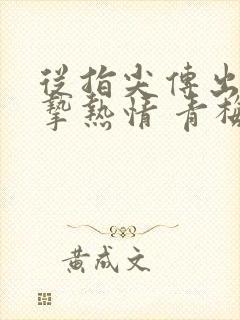 從指尖傳出
摯熱情 青梅
黃成文